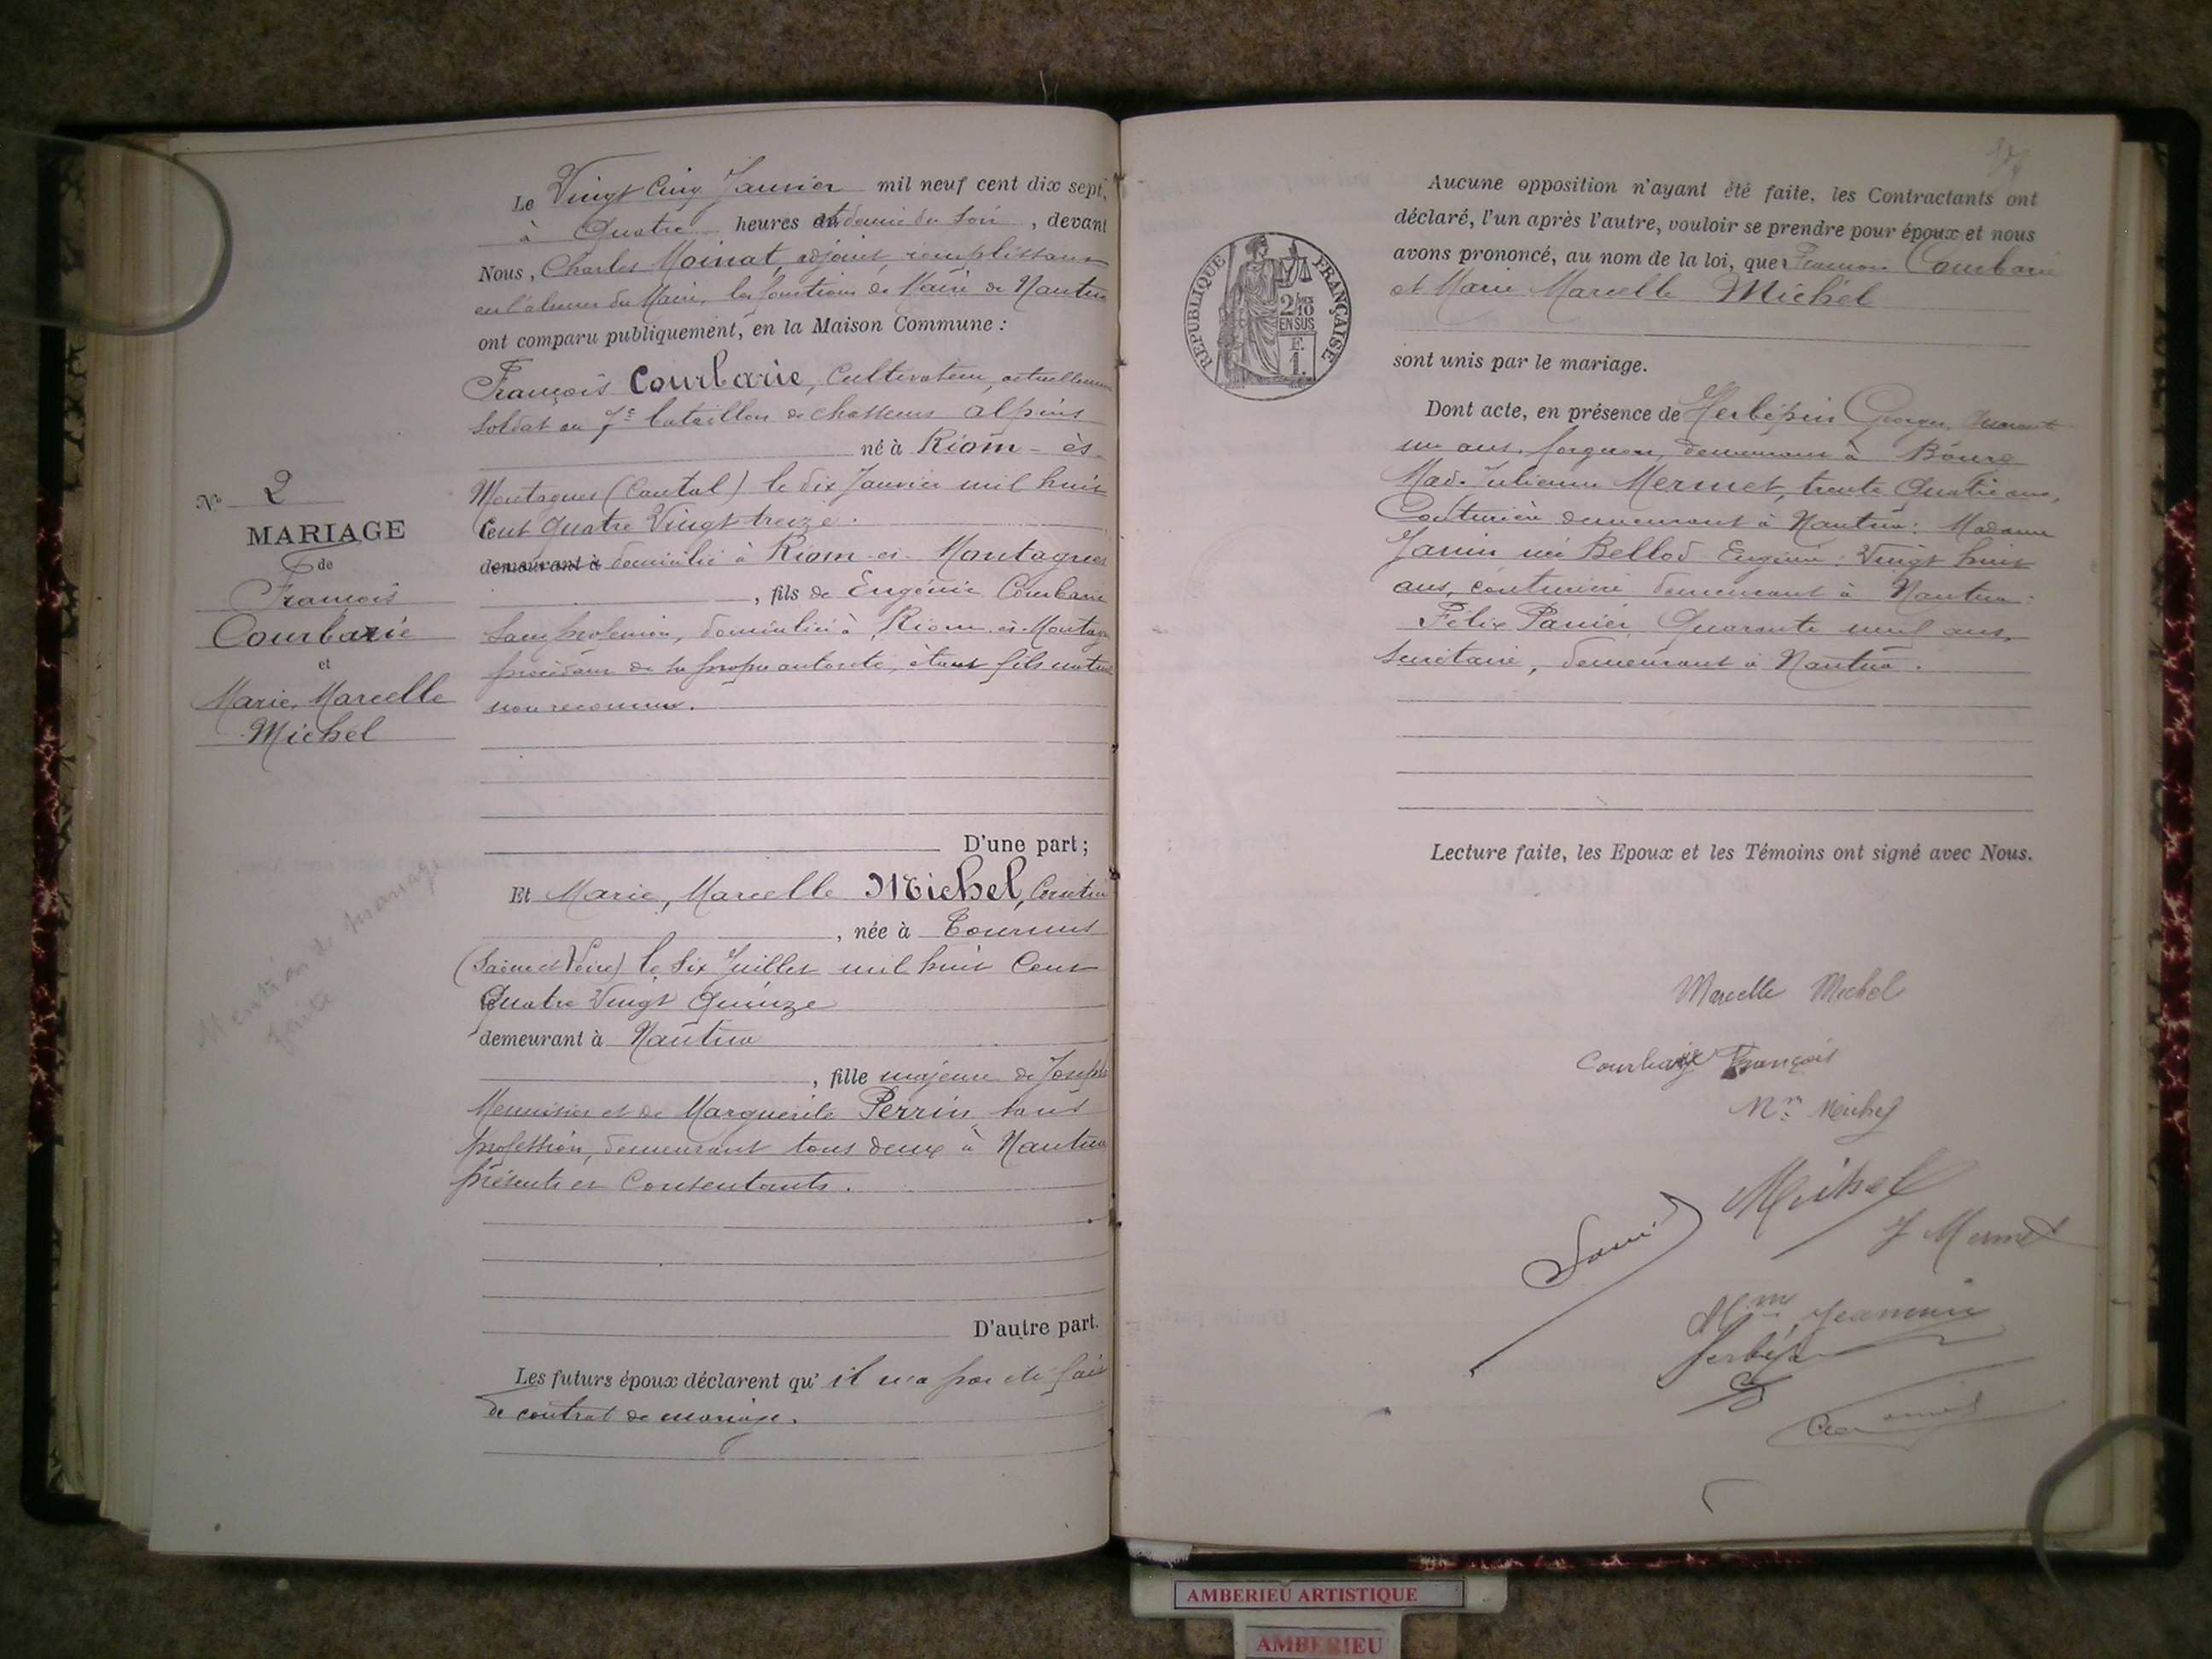 Le Vingt Cinq Janvier mil neuf cent dix sept,
à Quatre heures et demie du Soir, devant
Nous, Charles Moinat, adjoint, remplissant
en l'absence du Maire, les fonctions de Maire de Nantua
ont comparu publiquement, en la Maison Commune :
François Courbarie, Cultivateur, actuellement
Soldat au 7e bataillon de chasseurs alpins
né à Riom-ès-
Montagnes (Cantal) le dix Janvier mil huit
Cent Quatre Vingt treize.
demeurant à domicilié à Riom-ès-Montagnes
, fils de Eugénie Courbarie
Sans profession, domiciliée à Riom-ès-Montagnes
procédant de sa propre autorité, étant fils naturel
non reconnu.
D'une part ;
Et Marie, Marcelle Michel,
, née à Tournus
(Saône et Loire) le Six Juillet mil huit Cent
Quatre Vingt Quinze
demeurant à Nantua
, fille majeure de Joseph
Menuisier et de Marguerite Perrin, sans
profession, demeurant tous deux à Nantua
présents et Consentants.
D'autre part.
Les futurs époux déclarent qu'il n'a pas été fait
de contrat de mariage.
No 2
MARIAGE
de
François
Courbarie
et
Marie, Marcelle
Michel
Mention de mariage
faite
Aucune opposition n'ayant été faite, les Contractants ont
déclaré, l'un après l'autre, vouloir se prendre pour époux et nous
avons prononcé, au nom de la loi, que François Courbarie
et Marie Marcelle Michel
sont unis par le mariage.
Dont acte, en présence de Herbépin Georges, Quarante
un ans, forgeron, demeurant à Bourg
Mad. Julienne Mermet, trente Quatre ans,
Couturière demeurant à Nantua : Madame
Janin née Bellod Eugénie : Vingt huit
ans, couturière demeurant à Nantua :
Félix Panier, Quarante neuf ans,
Secrétaire, demeurant à Nantua.
Lecture faite, les Epoux et les Témoins ont signé avec Nous.
RÉPUBLIQUE FRANÇAISE
2/10
EN SUS
F.
1.
Marcelle Michel
Courbarie François
Michel
Michel
J Mermet
AMBERIEU ARTISTIQUE
AMBERIEU